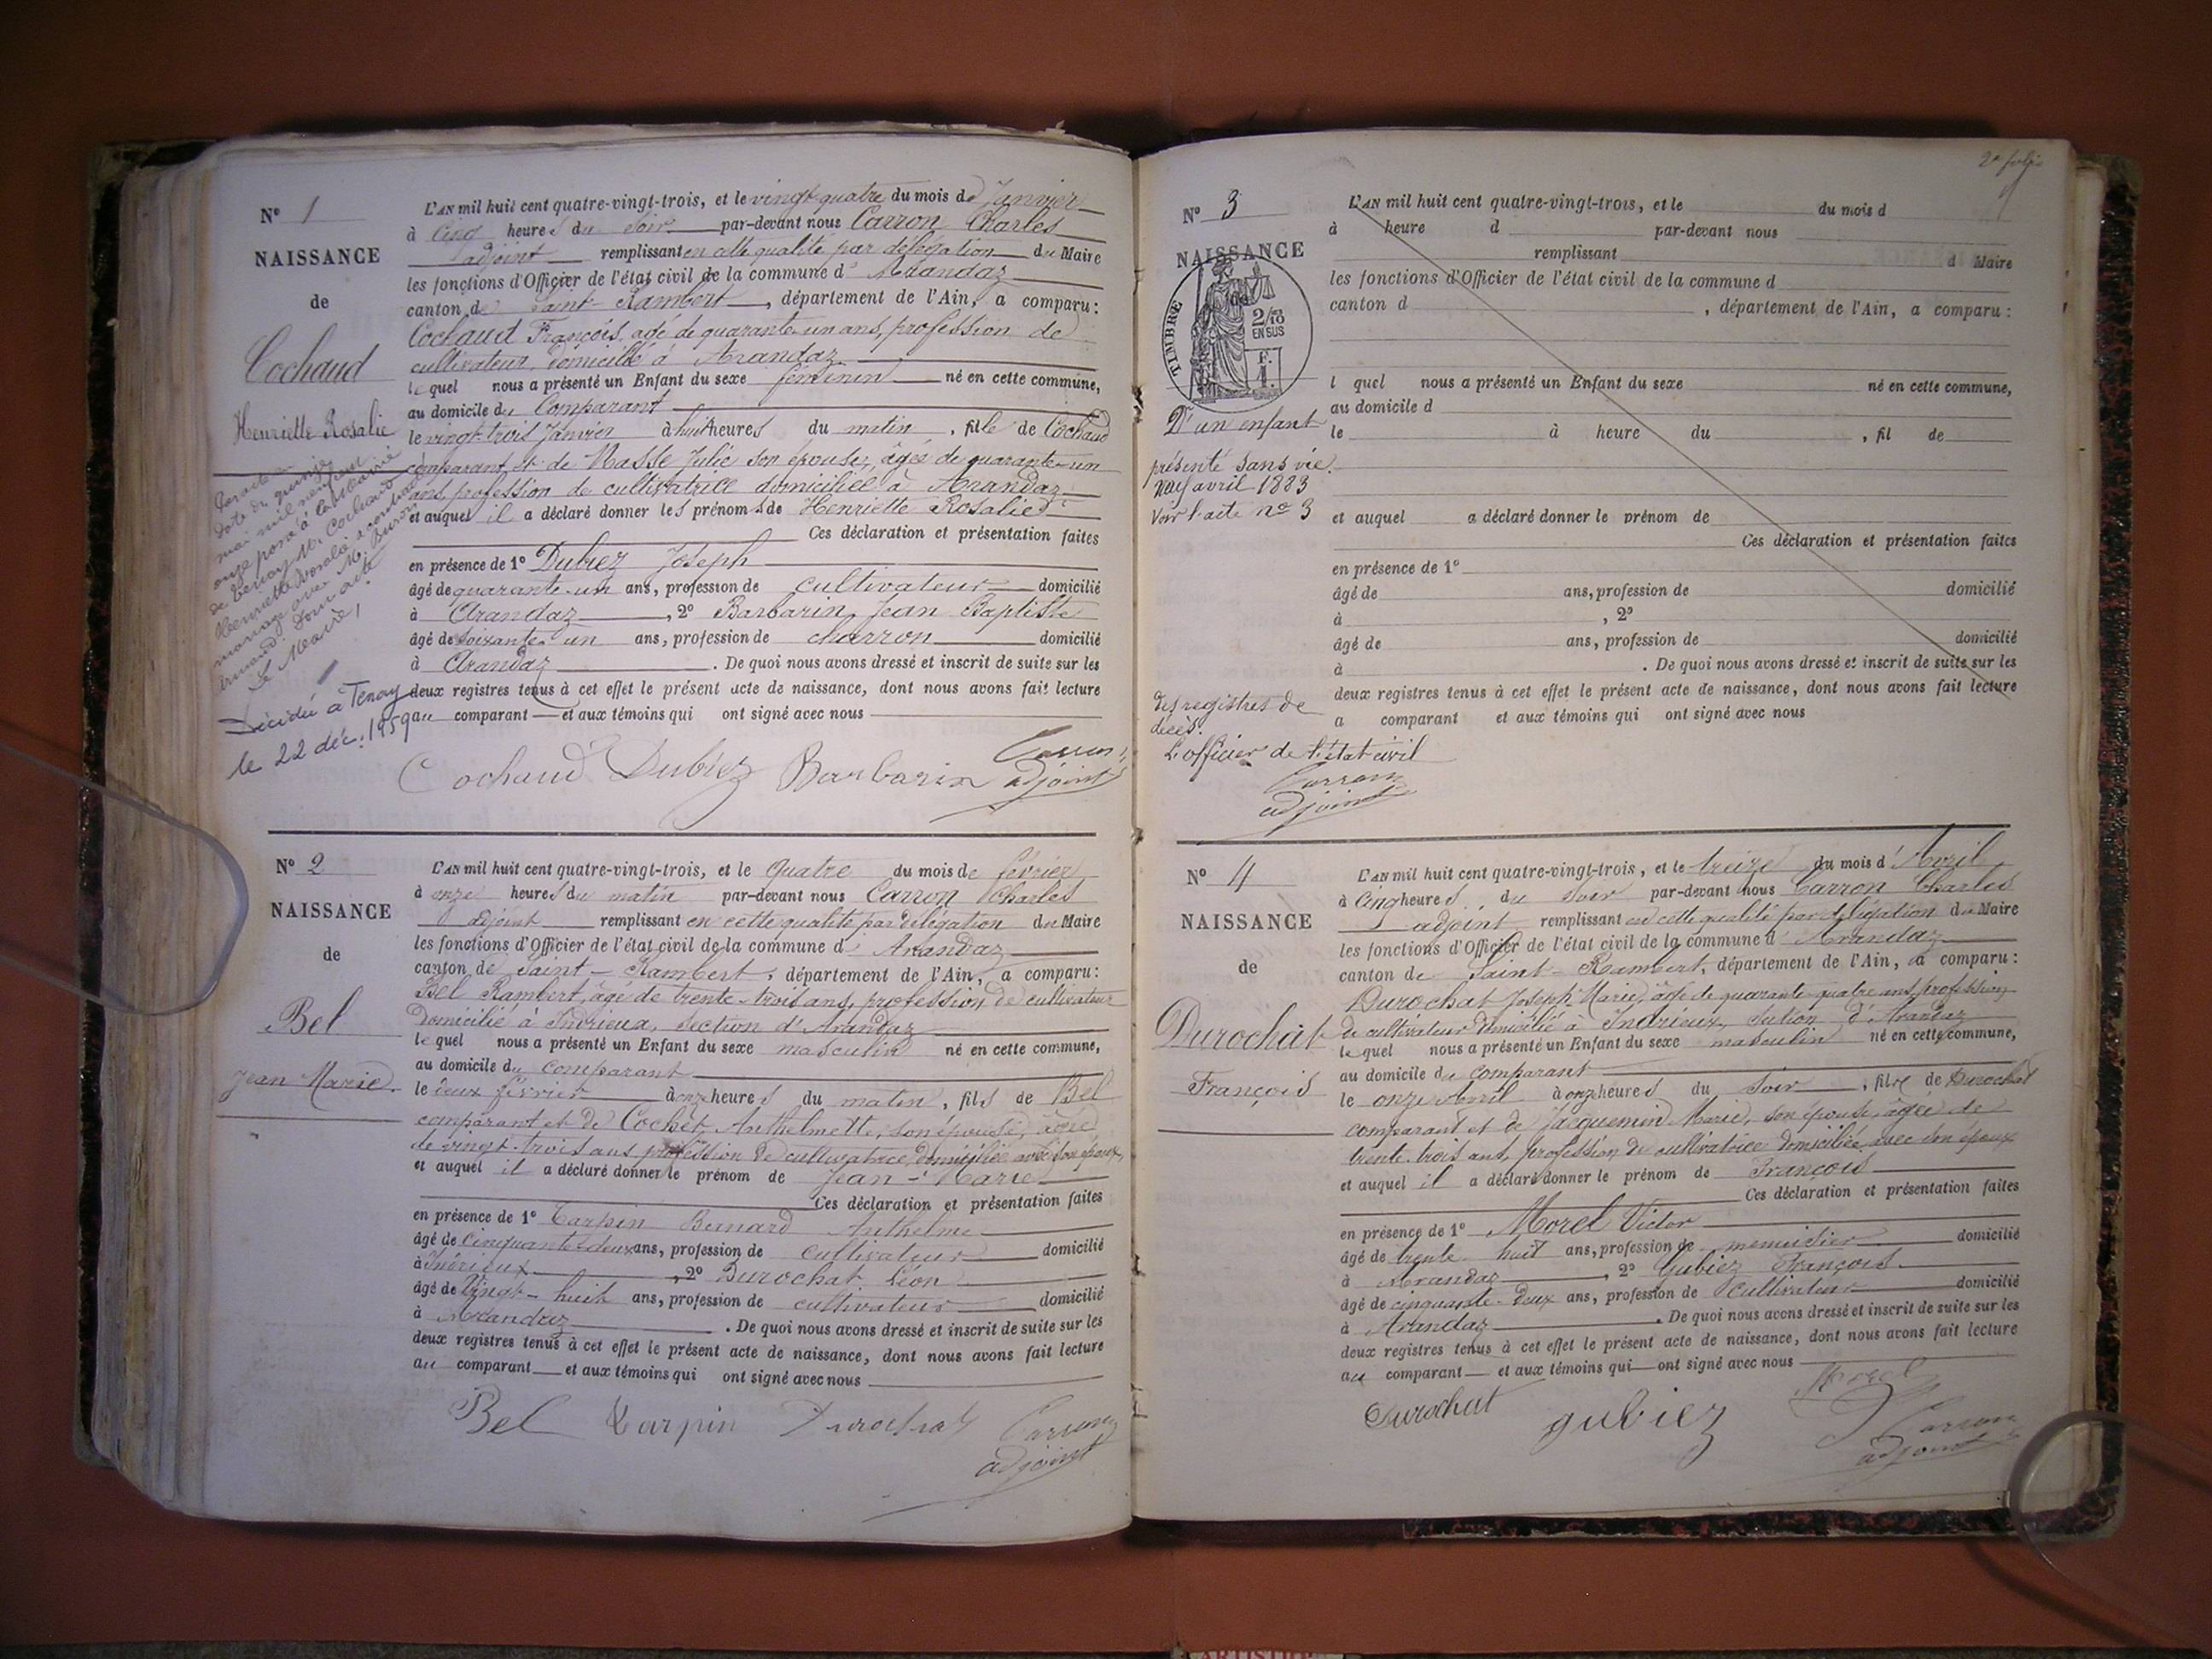 N° 1
NAISSANCE
de
Cochaud
Henriette Rosalie
Par acte en
date du quinze
mai mil neuf cent
onze passé à la Mairie
de Tenay M. Cochaud
Henriette Rosalie a contracté
mariage avec M.
Le Maire,
Décédée à Tenay
le 22 déc. 1959
L'AN mil huit cent quatre-vingt-trois, et le vingt-quatre du mois de Janvier
à cinq heures du soir par-devant nous Carron Charles
adjoint remplissant en cette qualité par délégation du Maire
les fonctions d'Officier de l'état civil de la commune d' Arandaz
canton de Saint-Rambert, département de l'Ain, a comparu:
Cochaud François, agé de quarante-un ans, profession de
cultivateur, domicilié à Arandaz
lequel nous a présenté un Enfant du sexe féminin né en cette commune,
au domicile du Comparant
le vingt-trois Janvier à huit heures du matin, fille de Cochaud
comparant, et de Masse Julie son épouse, âgée de quarante-un
ans, profession de cultivatrice domiciliée à Arandaz
et auquel il a déclaré donner les prénoms de Henriette Rosalie
Ces déclaration et présentation faites
en présence de 1° Dubiez Joseph
âgé de quarante-un ans, profession de cultivateur domicilié
à Arandaz, 2° Barbarin Jean Baptiste
âgé de soixante-un ans, profession de charron domicilié
à Arandaz. De quoi nous avons dressé et inscrit de suite sur les
deux registres tenus à cet effet le présent acte de naissance, dont nous avons fait lecture
au comparant et aux témoins qui ont signé avec nous
Cochaud Dubiez Barbarin Carron
adjoint
N° 2
NAISSANCE
de
Bel
Jean Marie.
L'AN mil huit cent quatre-vingt-trois, et le quatre du mois de février
à onze heures du matin par-devant nous Carron Charles
adjoint remplissant en cette qualité par délégation du Maire
les fonctions d'Officier de l'état civil de la commune d' Arandaz
canton de Saint-Rambert, département de l'Ain, a comparu:
Bel Rambert, âgé de trente-trois ans, profession de cultivateur
domicilié à Indrieux, section d'Arandaz
lequel nous a présenté un Enfant du sexe masculin né en cette commune,
au domicile du comparant
le deux février à onze heures du matin, fils de Bel
comparant et de Cochet Anthelmette, son épouse, âgée
de vingt-trois ans profession de cultivatrice, domiciliée avec son époux,
et auquel il a déclaré donner le prénom de Jean-Marie
Ces déclaration et présentation faites
en présence de 1° Tarpin Bernard Anthelme
âgé de cinquante-deux ans, profession de cultivateur domicilié
à Indrieux, 2° Durochat Léon
âgé de vingt-huit ans, profession de cultivateur domicilié
à Arandaz. De quoi nous avons dressé et inscrit de suite sur les
deux registres tenus à cet effet le présent acte de naissance, dont nous avons fait lecture
au comparant et aux témoins qui ont signé avec nous
Bel Tarpin Durochat Carron
adjoint
N° 3
NAISSANCE
de
TIMBRE
2/10
EN SUS
D'un enfant
présenté sans vie.
Neuf avril 1883
Voir l'acte n° 3
des registres de
décès.
L'officier de l'état civil
Carron
adjoint
L'AN mil huit cent quatre-vingt-trois, et le du mois d
à heure d par-devant nous
remplissant d Maire
les fonctions d'Officier de l'état civil de la commune d
canton d , département de l'Ain, a comparu:
l quel nous a présenté un Enfant du sexe né en cette commune,
au domicile d
le à heure du , fil de
et auquel a déclaré donner le prénom de
Ces déclaration et présentation faites
en présence de 1°
âgé de ans, profession de domicilié
à , 2°
âgé de ans, profession de domicilié
à . De quoi nous avons dressé et inscrit de suite sur les
deux registres tenus à cet effet le présent acte de naissance, dont nous avons fait lecture
a comparant et aux témoins qui ont signé avec nous
N° 4
NAISSANCE
de
Durochat
François
L'AN mil huit cent quatre-vingt-trois, et le treize du mois d'Avril
à cinq heures du soir par-devant nous Carron Charles
adjoint remplissant en cette qualité par délégation du Maire
les fonctions d'Officier de l'état civil de la commune d' Arandaz
canton de Saint-Rambert, département de l'Ain, a comparu:
Durochat Joseph Marie, âgé de quarante quatre ans, profession
de cultivateur domicilié à Indrieux, section d'Arandaz
lequel nous a présenté un Enfant du sexe masculin né en cette commune,
au domicile du comparant
le onze Avril à onze heures du soir, fils de Durochat
comparant et de Jacquemin Marie, son épouse, âgée de
trente-trois ans, profession de cultivatrice domiciliée avec son époux
et auquel il a déclaré donner le prénom de François
Ces déclaration et présentation faites
en présence de 1° Morel Victor
âgé de trente-huit ans, profession de menuisier domicilié
à Arandaz, 2° Gubiez François
âgé de cinquante-deux ans, profession de cultivateur domicilié
à Arandaz. De quoi nous avons dressé et inscrit de suite sur les
deux registres tenus à cet effet le présent acte de naissance, dont nous avons fait lecture
au comparant et aux témoins qui ont signé avec nous
Durochat gubiez Morel
Carron
adjoint